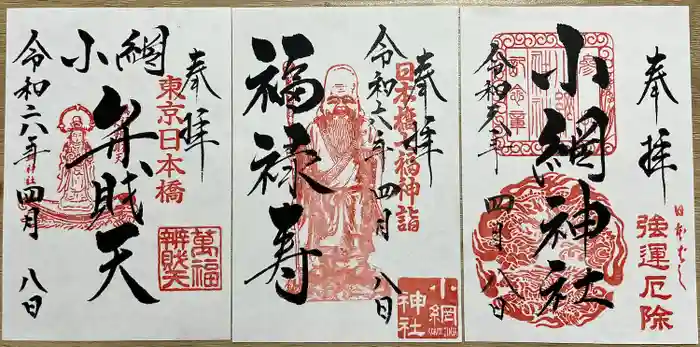 奉拝
強運厄除
小網神社
令和六年
四月八日
奉拝
日本橋七福神詣
令和六年
四月八日
福禄寿
小網
神社
奉拝
東京日本橋
小網
弁財天
萬福
辨財天
令和六年
四月
八日